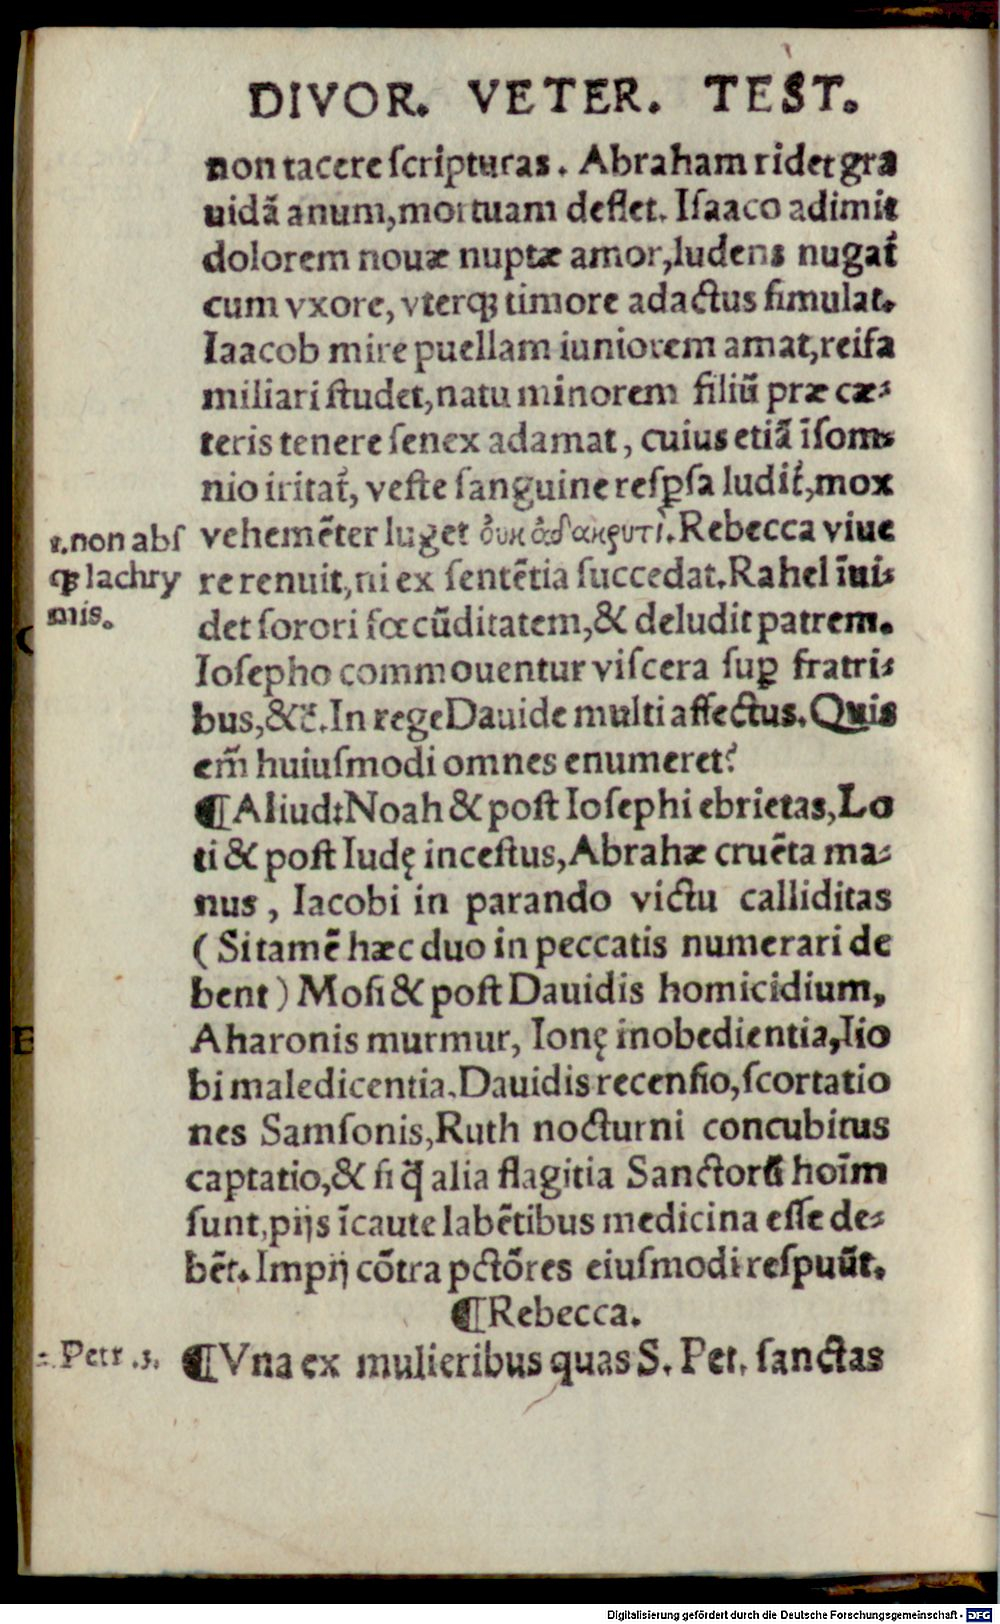 DIVOR. VETER. TEST.
non tacere ſcripturas. Abraham ridet gra
uidã anum, mortuam deflet. Iſaaco adimit
dolorem nouæ nuptæ amor, ludens nugat᷑
cum vxore, vterqꝫ timore adactus ſimulat.
Iaacob mire puellam iuniorem amat, rei fa
miliari ſtudet, natu minorem filiũ præ cæ⸗
teris tenere ſenex adamat, cuius etiã ĩ ſom⸗
nio iritat᷑, veſte ſanguine reſꝑſa ludit᷑, mox
vehemẽter luget ὀυκ ἀδακρυτὶ. Rebecca viue
re renuit, ni ex ſentẽtia ſuccedat. Rahel ĩui⸗
det ſorori fœcũditatem, & deludit patrem.
Ioſepho commouentur viſcera ſuꝑ fratri⸗
bus, &c̃. In rege Dauide multi affectus. Quis
em̃ huiuſmodi omnes enumeret?
¶ Aliud: Noah & poſt Ioſephi ebrietas, Lo
ti & poſt Iudę inceſtus, Abrahæ cruẽta ma⸗
nus, Iacobi in parando victu calliditas
( Si tamẽ hæc duo in peccatis numerari de
bent ) Moſi & poſt Dauidis homicidium,
Aharonis murmur, Ionę inobedientia, Iio
bi maledicentia. Dauidis recenſio, ſcortatio
nes Samſonis, Ruth nocturni concubitus
captatio, & ſi q̃ alia flagitia Sanctorũ hoĩm
ſunt, pijs ĩcaute labẽtibus medicina eſſe de⸗
bẽt. Impij cõtra pctõres eiuſmodi reſpuũt.
¶ Rebecca.
¶ Vna ex mulieribus quas S. Pet. ſanctas
1. non abſ
qꝫ lachry
mis.
Petr .3.
Digitalisierung gefördert durch die Deutsche Forschungsgemeinschaft - DFG